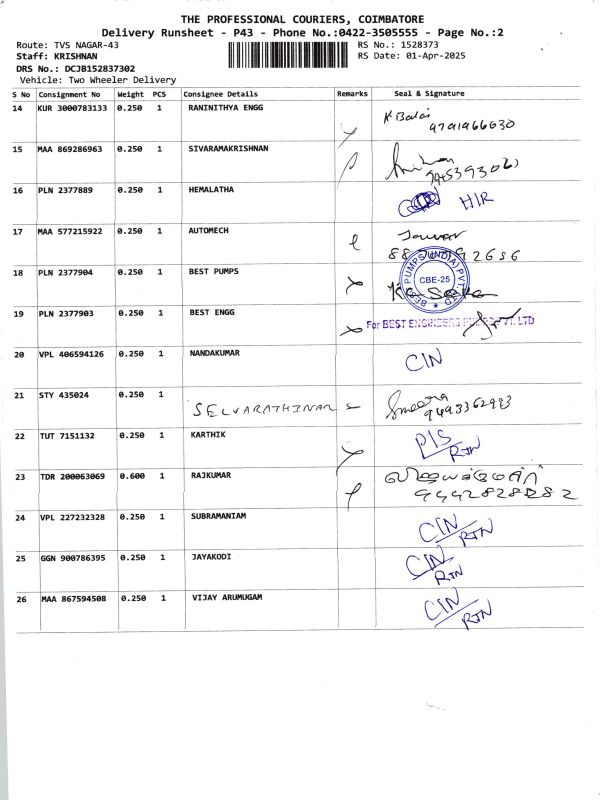 THE PROFESSIONAL COURIERS, COIMBATORE
Delivery Runsheet - P43 - Phone No.:0422-3505555 - Page No.:2
Route: TVS NAGAR-43 RS No.: 1528373
Staff: KRISHNAN RS Date: 01-Apr-2025
DRS No.: DCJB152837302
Vehicle: Two Wheeler Delivery
S No Consignment No Weight PCS Consignee Details Remarks Seal & Signature
14 KUR 3000783133 0.250 1 RANINITHYA ENGG K Balaj
9791966630
15 MAA 869286963 0.250 1 SIVARAMAKRISHNAN
16 PLN 2377889 0.250 1 HEMALATHA HIR
17 MAA 577215922 0.250 1 AUTOMECH
18 PLN 2377904 0.250 1 BEST PUMPS BEST PUMPS (INDIA) PVT. LTD CBE-25
19 PLN 2377903 0.250 1 BEST ENGG For BEST ENGINEERS PVT. LTD
20 VPL 406594126 0.250 1 NANDAKUMAR CIN
21 STY 435024 0.250 1 SELVARATHINAM Smeera
9493362993
22 TUT 7151132 0.250 1 KARTHIK P/S
RTN
23 TDR 200063069 0.600 1 RAJKUMAR
24 VPL 227232328 0.250 1 SUBRAMANIAM CIN
RTN
25 GGN 900786395 0.250 1 JAYAKODI CIN
RTN
26 MAA 867594508 0.250 1 VIJAY ARUMUGAM CIN
RTN